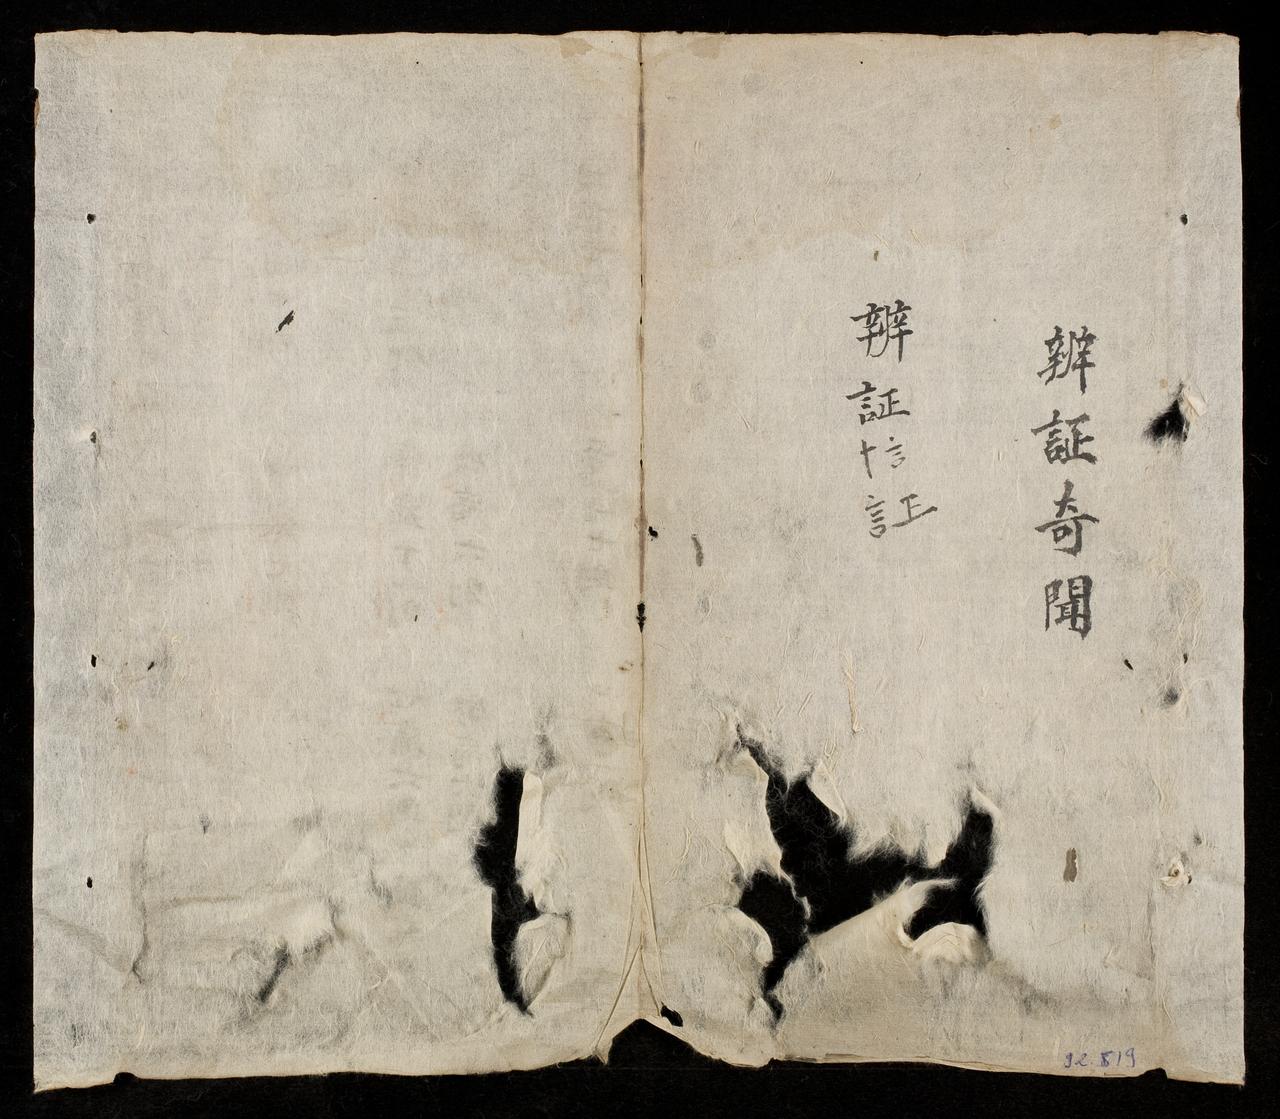 辨証奇聞
辨証十言
証
92.819